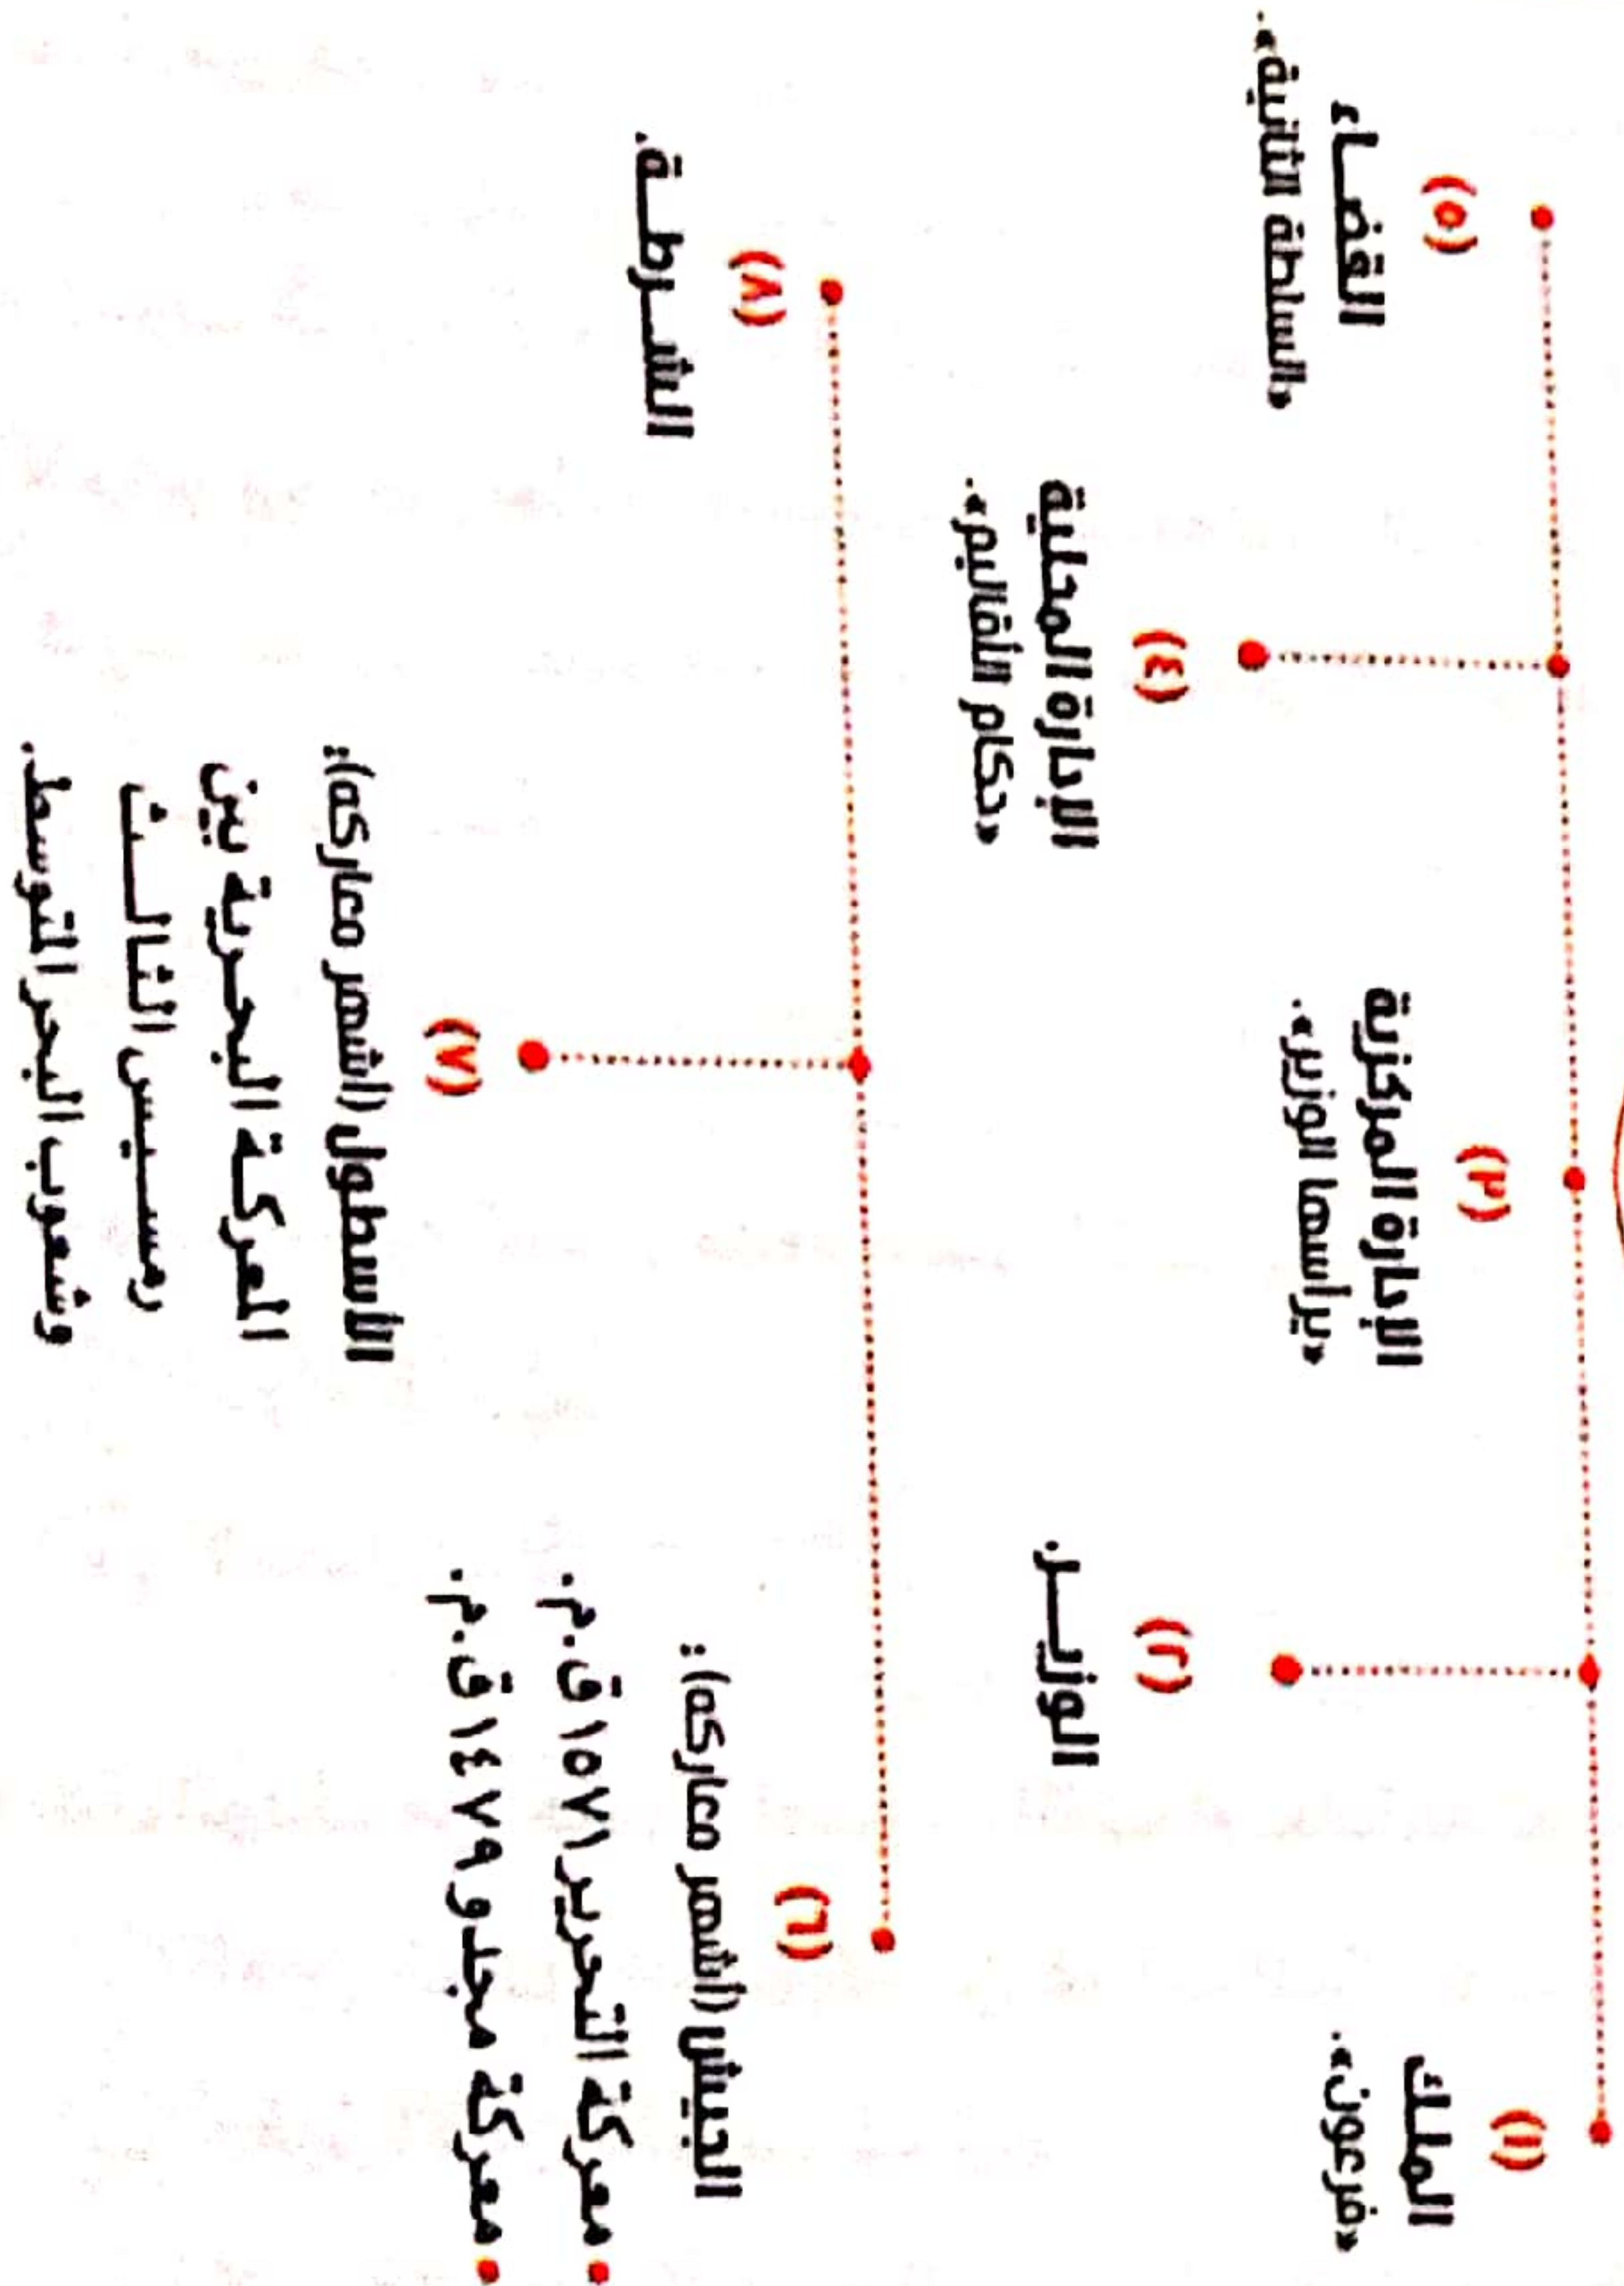 (١)
الملك
«فرعون».
(٢)
الوزيــر.
(٣)
الإدارة المركزية
«يرأسها الوزير».
(٤)
الإدارة المحلية
«حكام الأقاليم».
(٥)
القضــاء
«السلطة الثانية».
(٦)
الجيش (أشهر معاركه):
• معركة التحرير ١٥٧١ ق.م.
• معركة مجدو ١٤٧٩ ق.م.
(٧)
الأسطول (أشهر معاركه):
المعركـة البحـرية بين
رمسـيس الثـالــث
وشعوب البحر المتوسط.
(٨)
الشــرطــة.